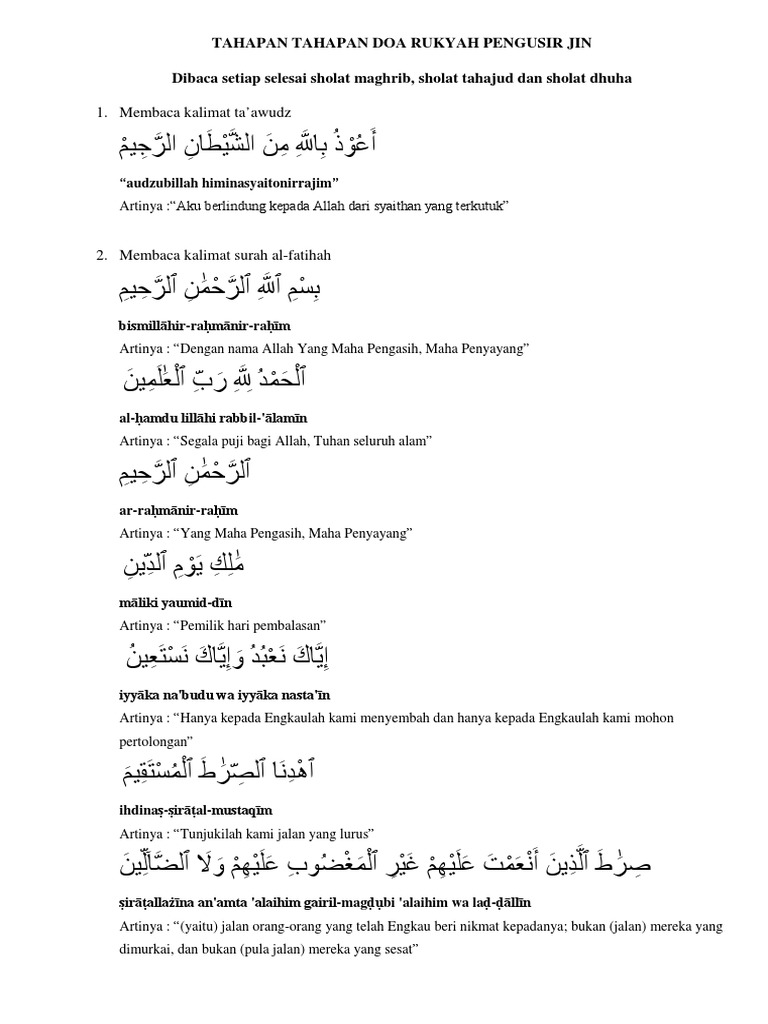 TAHAPAN TAHAPAN DOA RUKYAH PENGUSIR JIN
Dibaca setiap selesai sholat maghrib, sholat tahajud dan sholat dhuha
1. Membaca kalimat ta’awudz
أَعُوْذُ بِاللَّهِ مِنَ الشَّيْطَانِ الرَّجِيمْ
“audzubillah himinasyaitonirrajim”
Artinya :“Aku berlindung kepada Allah dari syaithan yang terkutuk”
2. Membaca kalimat surah al-fatihah
بِسْمِ ٱللَّهِ ٱلرَّحْمَٰنِ ٱلرَّحِيمِ
bismillāhir-raḥmānir-raḥīm
Artinya : “Dengan nama Allah Yang Maha Pengasih, Maha Penyayang”
ٱلْحَمْدُ لِلَّهِ رَبِّ ٱلْعَٰلَمِينَ
al-ḥamdu lillāhi rabbil-'ālamīn
Artinya : “Segala puji bagi Allah, Tuhan seluruh alam”
ٱلرَّحْمَٰنِ ٱلرَّحِيمِ
ar-raḥmānir-raḥīm
Artinya : “Yang Maha Pengasih, Maha Penyayang”
مَٰلِكِ يَوْمِ ٱلدِّينِ
māliki yaumid-dīn
Artinya : “Pemilik hari pembalasan”
إِيَّاكَ نَعْبُدُ وَإِيَّاكَ نَسْتَعِينُ
iyyāka na'budu wa iyyāka nasta'īn
Artinya : “Hanya kepada Engkaulah kami menyembah dan hanya kepada Engkaulah kami mohon
pertolongan”
ٱهْدِنَا ٱلصِّرَٰطَ ٱلْمُسْتَقِيمَ
ihdinaṣ-ṣirāṭal-mustaqīm
Artinya : “Tunjukilah kami jalan yang lurus”
صِرَٰطَ ٱلَّذِينَ أَنْعَمْتَ عَلَيْهِمْ غَيْرِ ٱلْمَغْضُوبِ عَلَيْهِمْ وَلَا ٱلضَّآلِّينَ
ṣirāṭallażīna an'amta 'alaihim gairil-magḍụbi 'alaihim wa laḍ-ḍāllīn
Artinya : “(yaitu) jalan orang-orang yang telah Engkau beri nikmat kepadanya; bukan (jalan) mereka yang
dimurkai, dan bukan (pula jalan) mereka yang sesat”